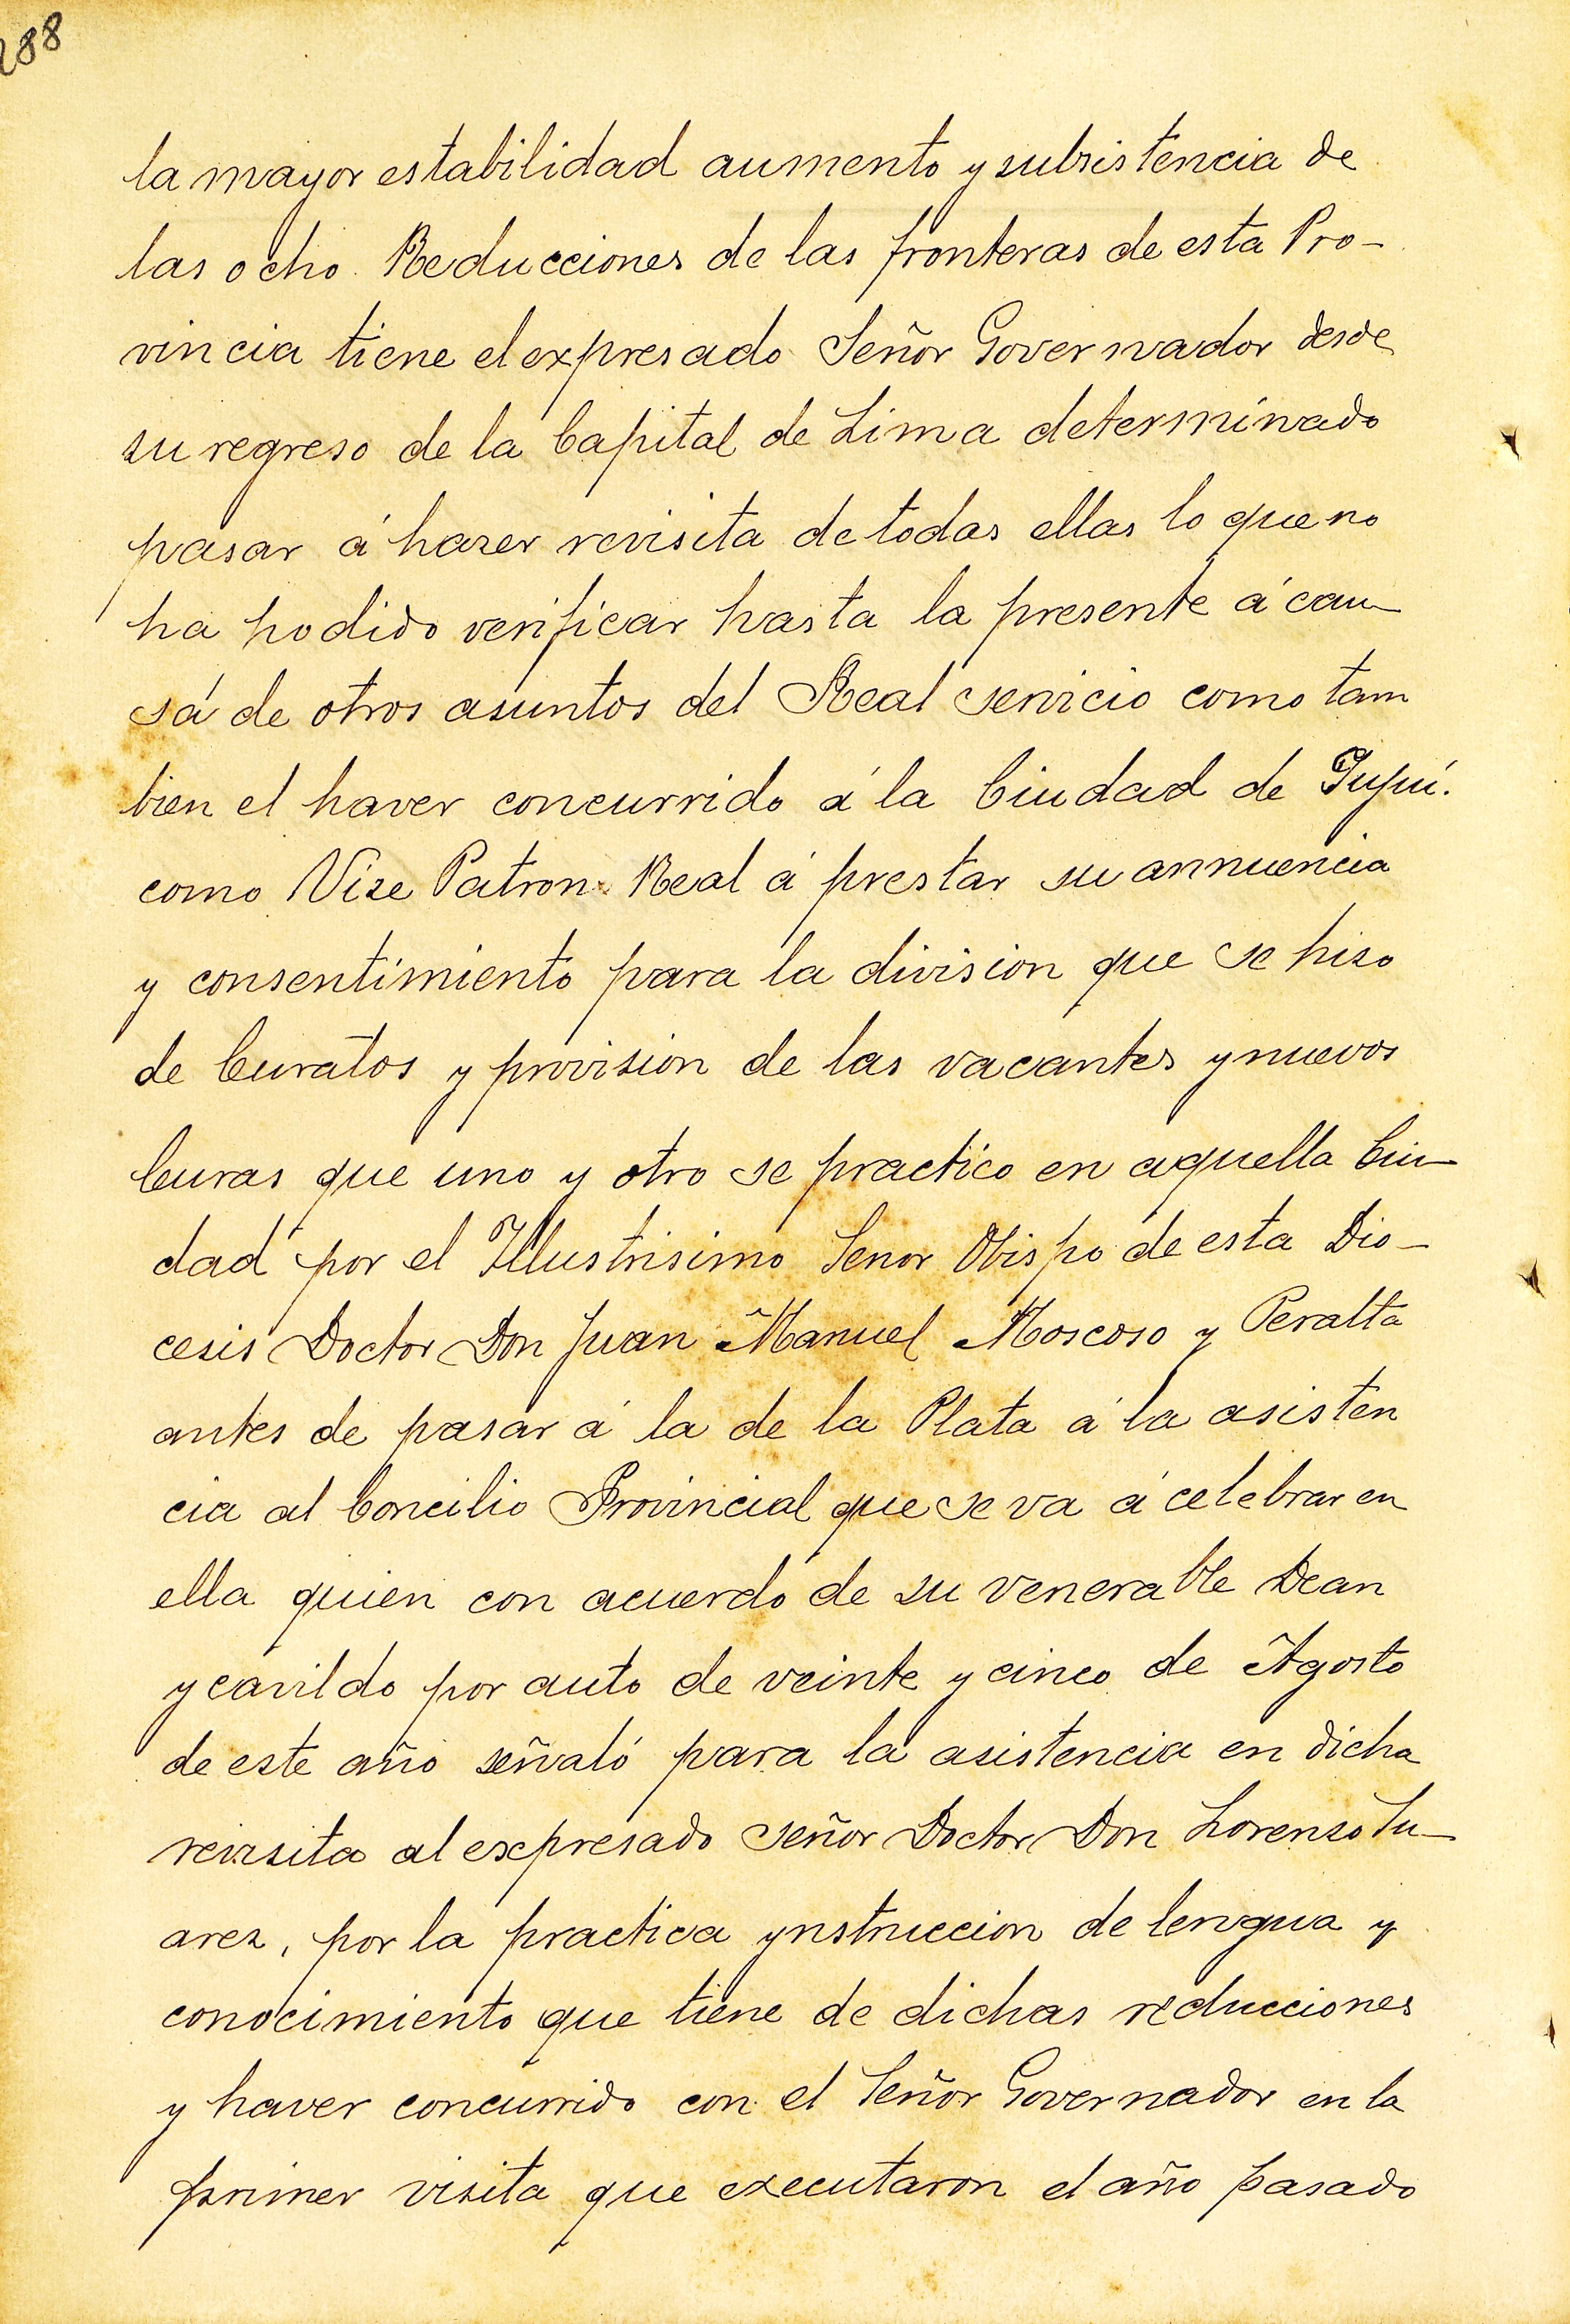 288
la mayor estabilidad aumento y subsistencia de
las ocho Reducciones de las fronteras de esta Pro-
vincia tiene el expresado Señor Governador desde
su regreso de la Capital de Lima determinado
pasar á haser revisita de todas ellas lo que no
ha podido verificar hasta la presente á cau-
sa de otros asuntos del Real servicio como tam
bien el haver concurrido á la Ciudad de Jujui.
como Vise Patron Real á prestar su annuencia
y consentimiento para la division que se hiso
de Curatos y provision de las vacantes y nuevos
Curas que uno y otro se practico en aquella Ciu-
dad por el Illustrisimo Senor Obispo de esta Dio-
cesis Doctor Don Juan Manuel Moscoso y Peralta
antes de pasar á la de la Plata á la asisten
cia al Concilio Provincial que se va á celebrar en
ella quien con acuerdo de su venerable Dean
y cavildo por auto de veinte y cinco de Agosto
de este año señaló para la asistencia en dicha
revisita al expresado señor Doctor Don Lorenso Su-
arez, por la practica ynstruccion de lengua y
conocimiento que tiene de dichas reducciones
y haver concurrido con el Señor Governador en la
primer visita que executaron el año pasado